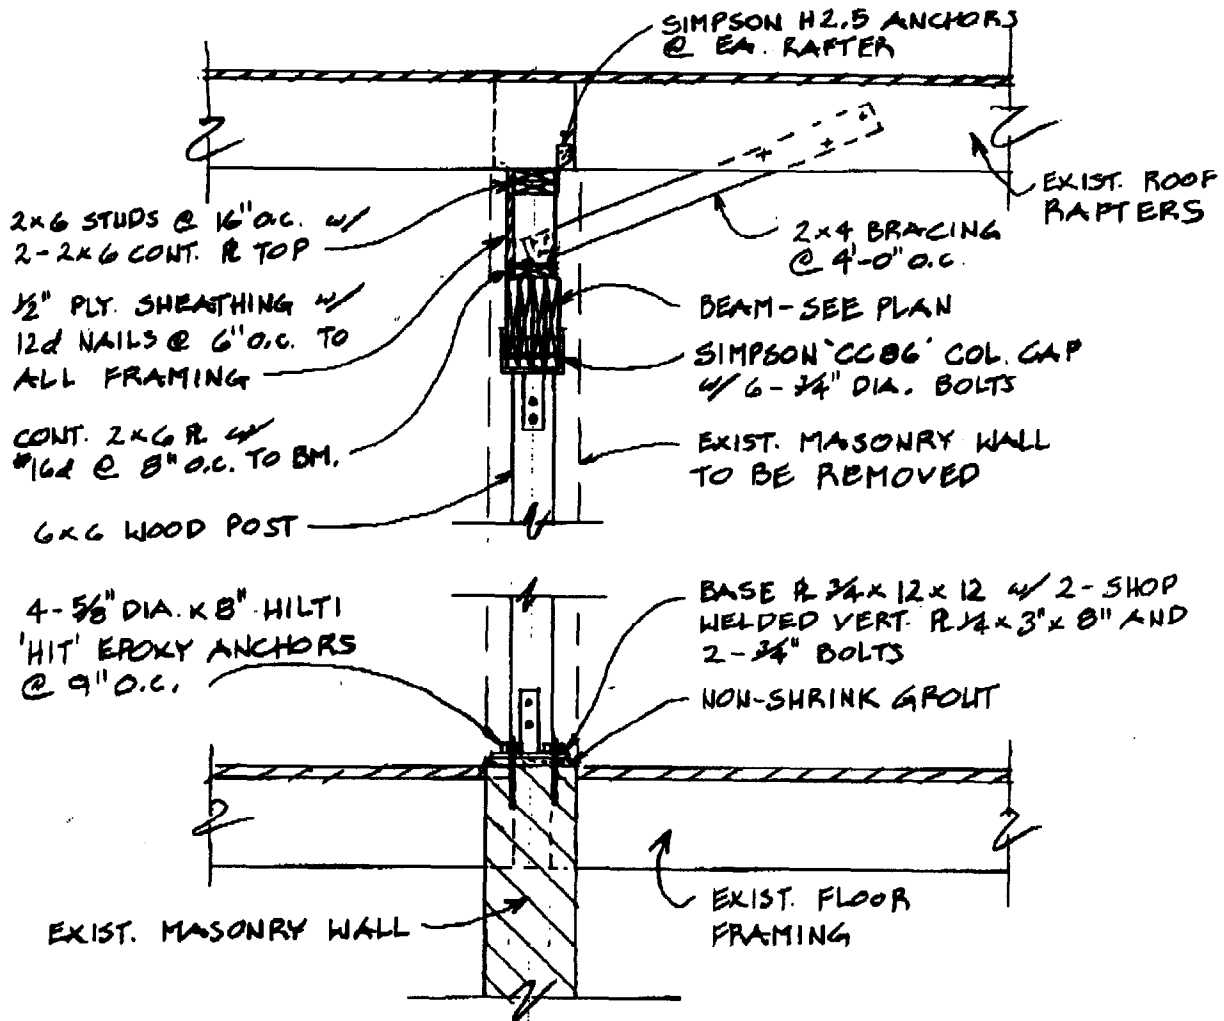 SIMPSON H2.5 ANCHORS
@ EA. RAFTER
EXIST. ROOF
RAFTERS
2x6 STUDS @ 16" O.C. w/
2-2x6 CONT. PL TOP
2x4 BRACING
@ 4'-0" O.C.
1/2" PLY. SHEATHING w/
12d NAILS @ 6" O.C. TO
ALL FRAMING
BEAM-SEE PLAN
SIMPSON 'CC86' COL. CAP
w/ 6-3/4" DIA. BOLTS
CONT. 2x6 PL w/
#16d @ 8" O.C. TO BM.
EXIST. MASONRY WALL
TO BE REMOVED
6x6 WOOD POST
4-5/8" DIA. x 8" HILTI
'HIT' EPOXY ANCHORS
@ 9" O.C.
BASE PL 3/4 x 12 x 12 w/ 2-SHOP
WELDED VERT. PL 1/4 x 3" x 8" AND
2-3/4" BOLTS
NON-SHRINK GROUT
EXIST. MASONRY WALL
EXIST. FLOOR
FRAMING